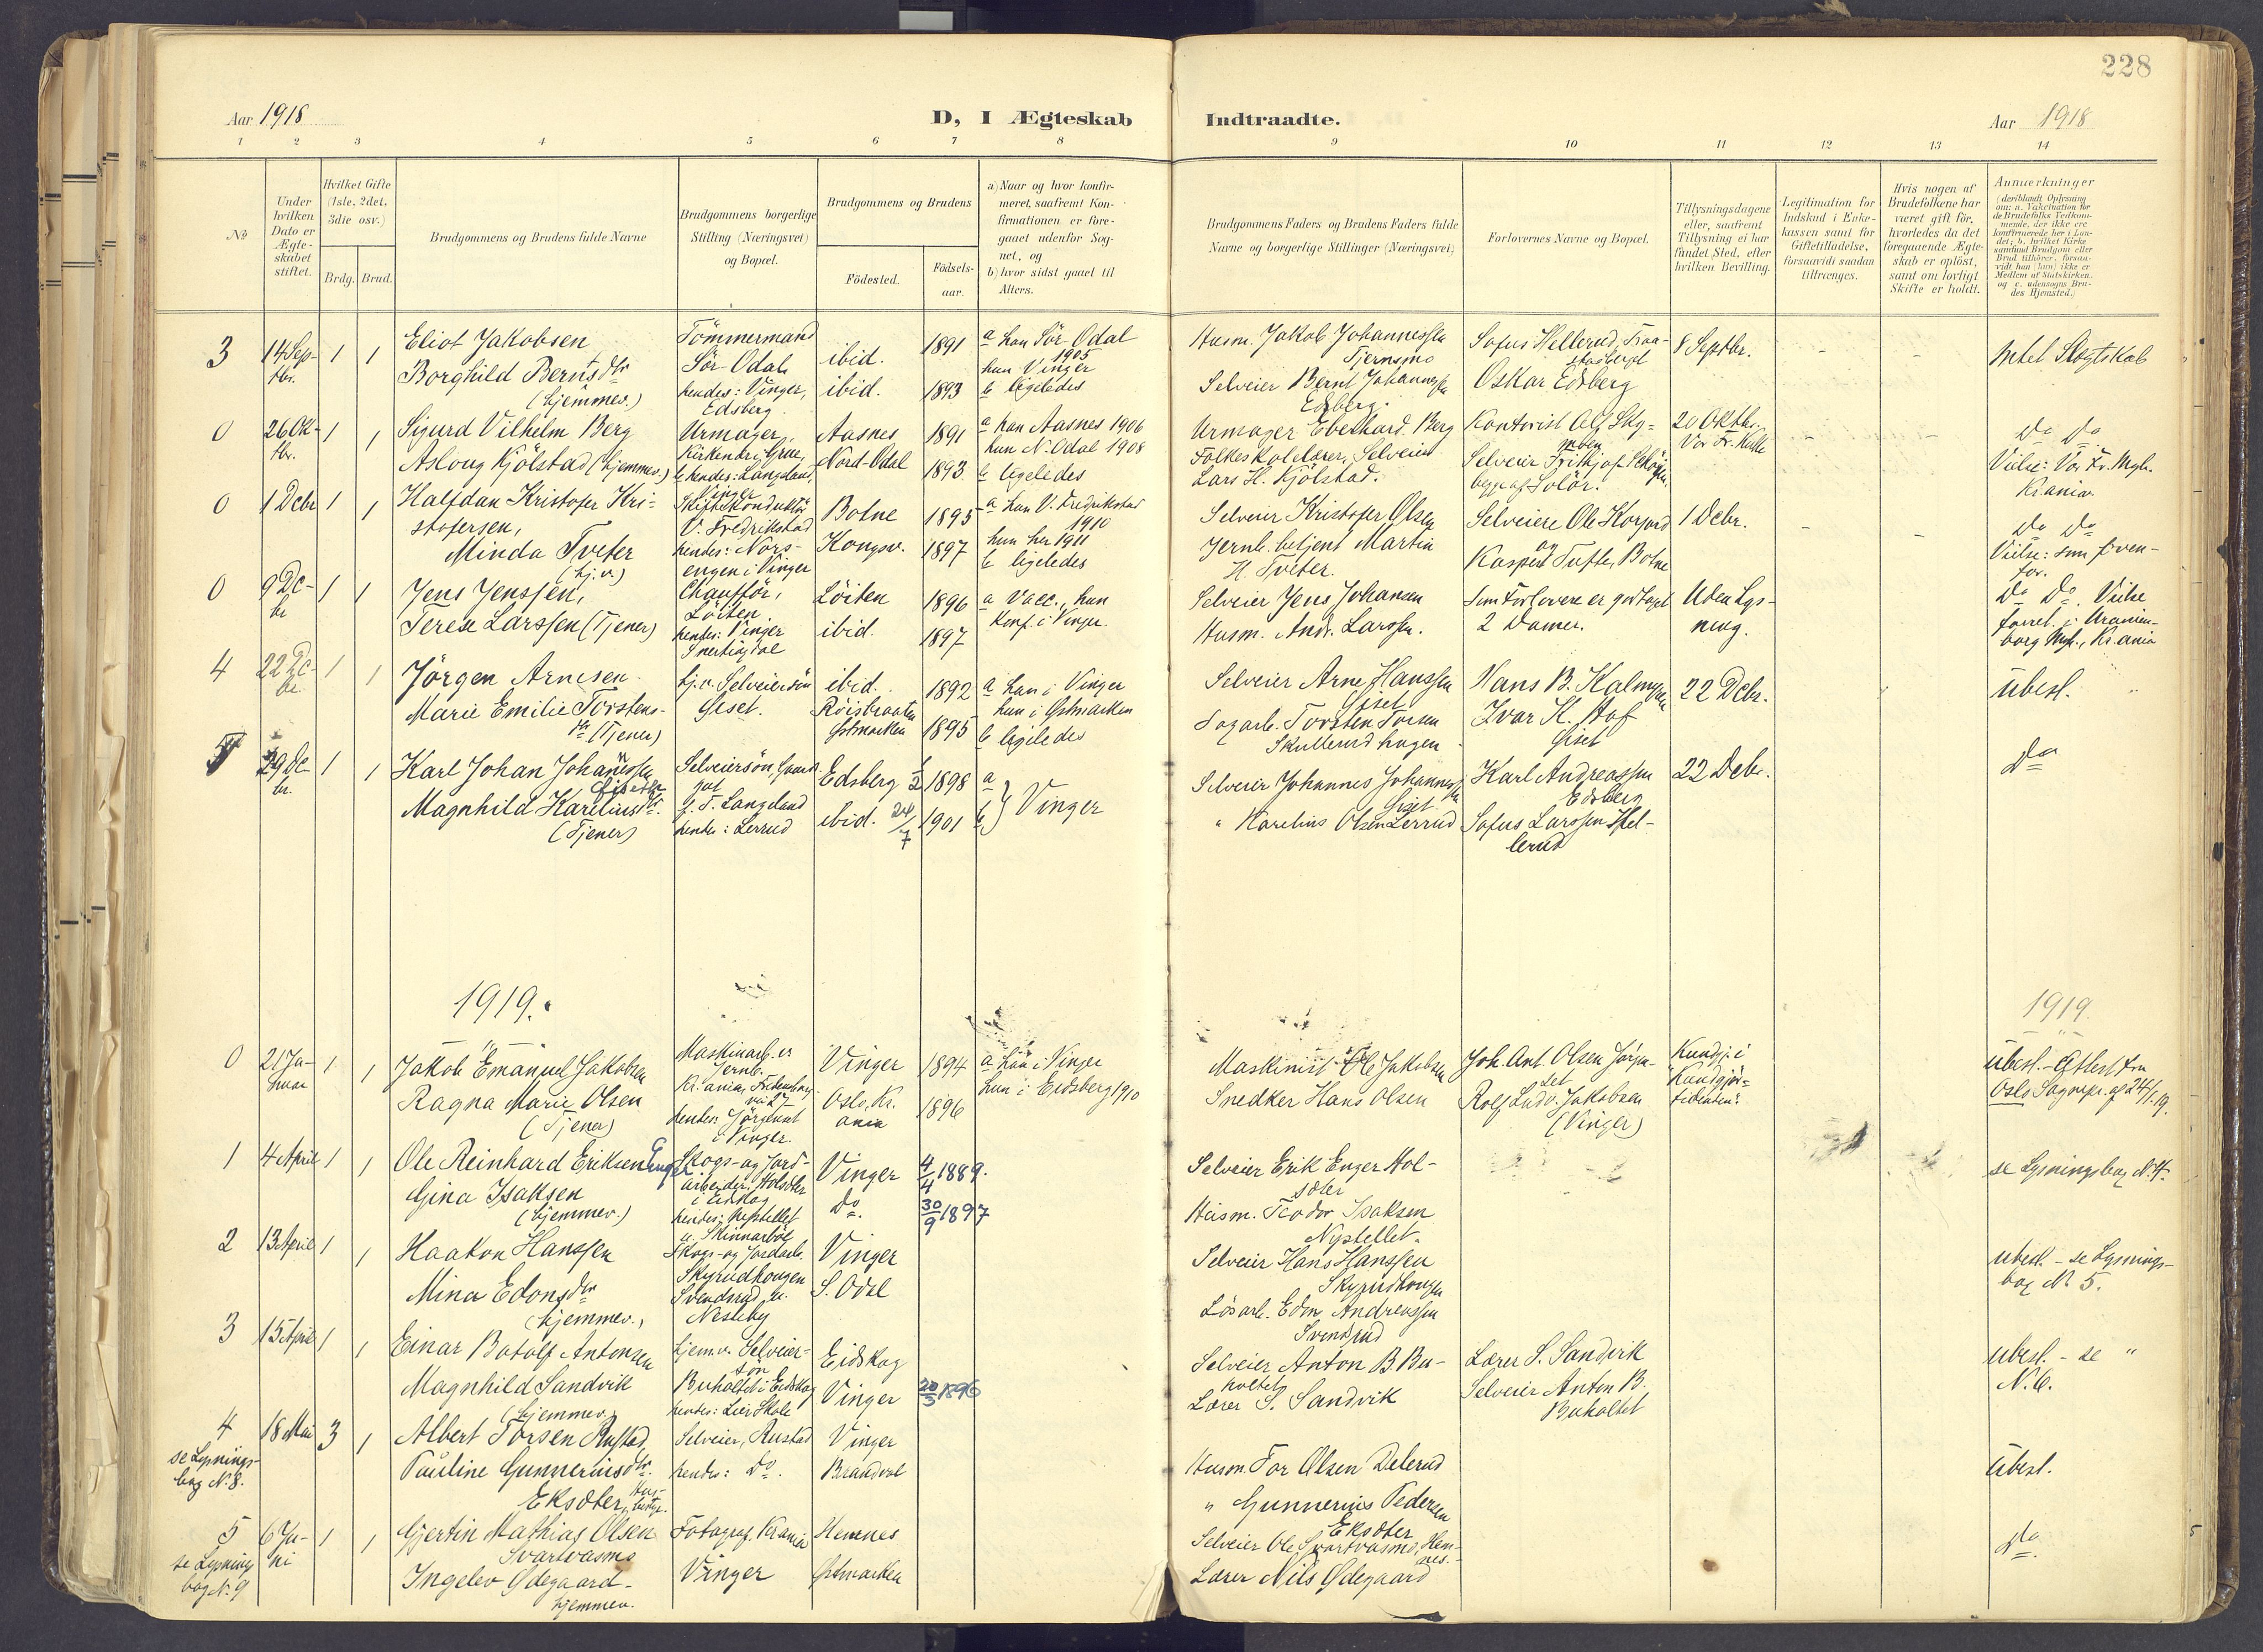 228
Aar 1918
D, I Ægteskab Indtraadte.
Aar 1918
1 2 3 4 5 6 7 8 9 10 11 12 13 14
No
Under hvilken Dato er Ægteskabet stiftet.
Hvilket Gifte (1ste, 2det, 3die osv.)
Brdg. Brud.
Brudgommens og Brudens fulde Navne
Brudgommens borgerlige Stilling (Næringsvei) og Bopæl.
Brudgommens og Brudens
Födested.
Födselsaar.
a) Naar og hvor konfirmeret, saafremt Konfirmationen er foregaaet udenfor Sognet, og
b) hvor sidst gaaet til Alters.
Brudgommens Faders og Brudens Faders fulde Navne og borgerlige Stillinger (Næringsvei)
Forlovernes Navne og Bopæl.
Tillysningsdagene eller, saafremt Tillysning ei har fundet Sted, efter hvilken Bevilling.
Legitimation for Indskud i Enkekassen samt for Giftetilladelse, forsaavidt saadan tiltrænges.
Hvis nogen af Brudefolkene har været gift för, hvorledes da det foregaaende Ægteskab er oplöst, samt om lovligt Skifte er holdt.
Anmærkninger
3 14 Septbr. 1 1
Eliot Jakobsen
Borghild Berntsdtr
(hjemmev.)
Tömmermand
Sör-Odal
hendes: Vinger,
Edsberg
ibid. 1891
ibid. 1893
a han Sör-Odal
1905
hun Vinger
b ligeledes
Husm. Jakob Johannessen
Tjernsmo
Selveier Bernt Johannessen
Edsberg.
Sofus Hellerud,
Oskar Edsberg
8 Septbr.
Intet Slegtskab
0 26 Oktbr. 1 1
Sigurd Vilhelm Berg
Aslaug Kjölstad (hjemmev.)
Urmager,
Kirkenær i Grue,
hendes: Langeland,
Vinger
Aasnes 1891
Nord-Odal 1893
a han Aasnes 1906
hun N. Odal 1908
b ligeledes
Urmager Eberhard Berg
Folkeskolelærer, Selveier
Lars H. Kjölstad.
Kontorist Alf
Selveier Fritjof
begge af Solör.
20 Oktbr.
Vor Fr. Kirke
Do Do
Vielse: Vor Fr. Mgh.
Kr.ania
0 1 Decbr 1 1
Halfdan Kristofer Kristofersen,
Minda Tveter
(hj.v.)
Skiftekonduktör
V. Fredrikstad
hendes: Norsengen i Vinger
Botne 1895
Kongsv. 1897
a han V. Fredrikstad
1910
hun her 1911
b ligeledes
Selveier Kristofer Olsen
Jernb. betjent Martin
H. Tveter.
Selveiere Ole Korsord
og
Kasper Tufte, Botne
1 Decbr.
Do Do
Vielse: som ovenfor.
0 9 Decbr 1 1
Jens Jenssen,
Terese Larssen (Tjener)
Chaufför,
Löiten
hendes: Vinger
Löiten 1896
ibid. 1897
a Vacc., hun
Konf. i Vinger.
Selveier Jens Johansen
Husm. Andr. Larssen.
Som Forlovere er godtaget
2 Damer.
Uden Lysning.
Do Do. Vielse
forret. i Uranienborg Mgh., Kr.ania
4 22 Decbr. 1 1
Jörgen Arnesen
Marie Emilie Torstensdtr (Tjener)
hj.v. Selveiersön
Giset.
ibid. 1892
Röisbraaten
Östmarken 1895
a han i Vinger
hun i Östmarken
b ligeledes
Selveier Arne Hanssen
Giset
Sagarb. Torsten Torsen
Skullerudhagen
Hans B. Kalmyren
Ivar K. Hof
Giset
22 Decbr.
Ubesl.
5 29 Decbr. 1 1
Karl Johan Johannessen
Magnhild Kareliusdtr.
(Tjener)
Selveiersön,
Langeland
hendes: Lerrud
Edsberg 1/2 1898
ibid. 24/7 1901
a
b } Vinger
Selveier Johannes Johannessen
Giset
" Karelius Olsen Lerrud
Karl Andreassen
Edsberg
Sofus Larssen Hellerud
22 Decbr.
Do
1919.
1919.
0 21 Januar 1 1
Jakob Emanuel Jakobsen
Ragna Marie Olsen
(Tjener)
Maskinarb. v.
Jernb.
Kr.ania,
hendes: Jörgentvet
i Vinger.
Vinger 1894
Oslo, Kr.ania 1896
a han i Vinger
hun i Eidsberg 1910
Maskinist Ole Jakobsen
Snedker Hans Olsen
Joh. Ant. Olsen
Rolf Ludv. Jakobsen
(Vinger)
Kundg. i
"Kundgjörtidenten".
Ubesl. Attest fra
Oslo Sognepr. af 24/1.19.
1 4 April 1 1
Ole Reinhard Eriksen Enger
Gina Isaksen
(hjemmev.)
Skogs- og Jordarbeider, Holsdter
i Eidskog
hendes: Nystellet
u. Skinnarböl
Vinger 4/4 1889.
Do. 30/9 1897
Selveier Erik Enger Holsdter
Husm. Teodor Isaksen
Nystellet.
se Lysningsbog N. 4.
2 13 April 1 1
Haakon Hanssen
Mina Edonsdtr
(hjemmev.)
Skogs- og Jordarb.
Skyrudhaugen
Svendsrud u.
Nesteby
Vinger
S. Odal
Selveier Hans Hanssen
Skyrudhaugen
Lösarb. Edon Andreassen
Svendsrud
Ubesl. - se Lysningsbog N. 5.
3 15 April 1 1
Einar Botolf Antonsen
Magnhild Sandvik
(hjemmev.)
hjem.v. Selveiersön
Buholtet i Eidskog
hendes: Leir Skole
Eidskog
Vinger 20/3 1896
Selveier Anton B. Buholtet
Lærer S. Sandvik
Lærer S. Sandvik
Selveier Anton B.
Buholtet
Ubesl. - se "
N. 6.
4 18 Mai 3 1
se Lysningsbog N. 8.
Albert Torsen Rustad,
Pauline Gunneriusdtr.
Eksdter, Husbestyr.
Selveier, Rustad
hendes: Do.
Vinger
Brandval
Husm. Tor Olsen Delerud
" Gunnerius Pedersen
Eksdter
Ubesl.
5 6 Juni 1 1
se Lysningsbog N. 9
Gjertin Mathias Olsen
Svartvasmo
Ingelev Ødegaard
hjemmev.
Fotograf, Krania
Vinger
Hemnes
Østmarken
Selveier Ole Svartvasmo, Hemnes.
Lærer Nils Ødegaard
Do.